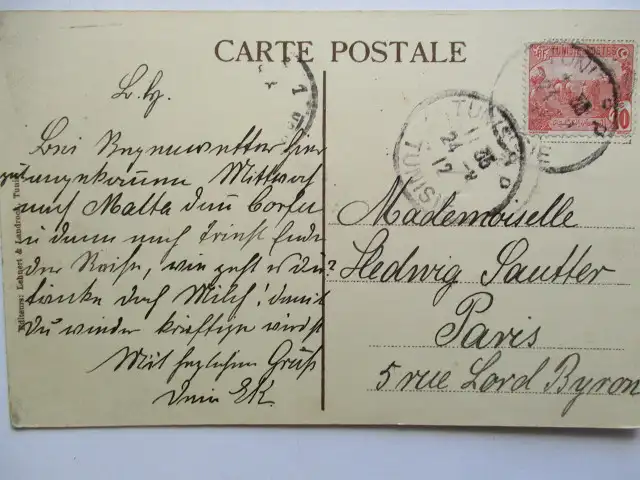 CARTE POSTALE
TUNISIE POSTES
10
TUNIS
L. H.
Bei Regenwetter hier
gut angekommen Mittwoch
nach Malta dann Corfu
u dann nach Triest Ende
der Reise, wie geht es Dir?
trinke doch Milch! damit
Du wieder kräftige wirst
Mit herzlichem Gruß
Dein EK.
Mademoiselle
Hedwig Sautter
Paris
5 rue Lord Byron
Editeurs: Lehnert & Landrock, Tunis